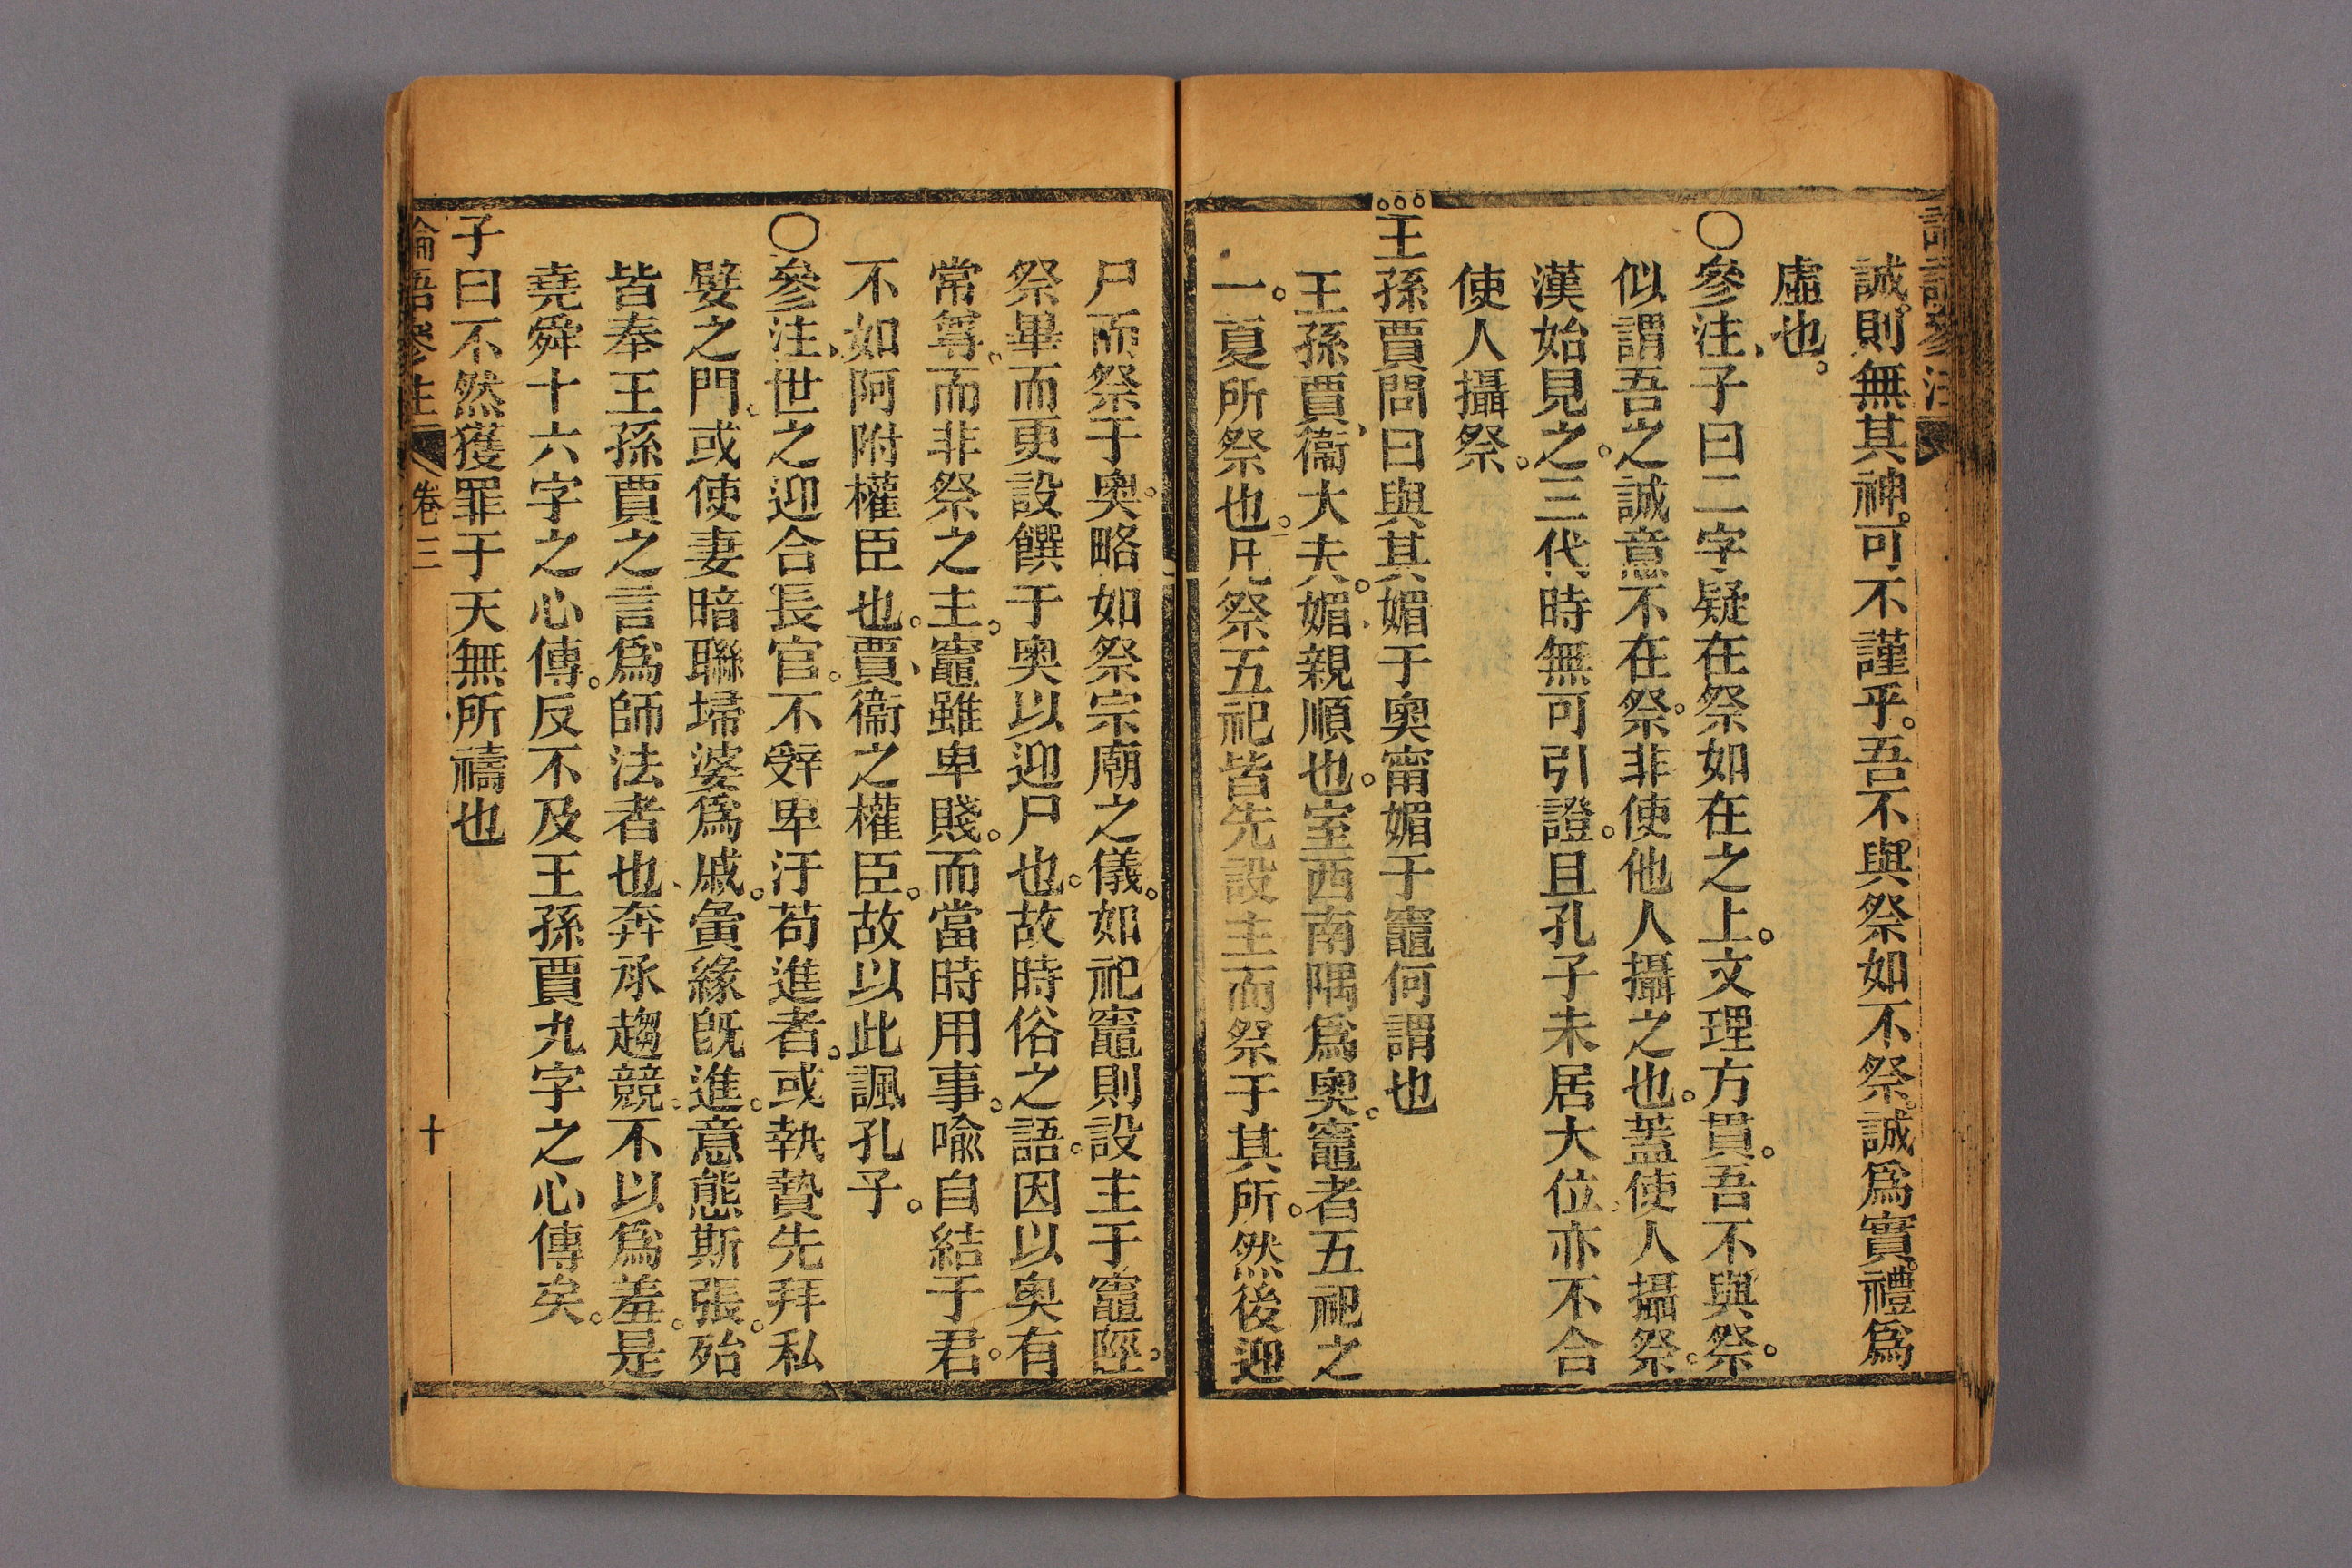 誠。則無其神。可不謹乎。吾不與祭如不祭。誠爲實。禮爲
虛也。
○參注、子曰二字疑在祭如在之上。文理方貫。吾不與祭。
似謂吾之誠意不在祭。非使他人攝之也。蓋使人攝祭。
漢始見之。三代時無可引證。且孔子未居大位。亦不合
使人攝祭。
王孫賈問曰與其媚于奧甯媚于竈何謂也
王孫賈、衞大夫。媚親順也。室西南隅爲奧。竈者五祀之
一。夏所祭也。凡祭五祀皆先設主而祭于其所。然後迎
尸而祭于奧。略如祭宗廟之儀。如祀竈則設主于竈陘。
祭畢而更設饌于奧以迎尸也。故時俗之語。因以奧有
常尊。而非祭之主。竈雖卑賤。而當時用事。喩自結于君。
不如阿附權臣也。賈、衞之權臣。故以此諷孔子。
○參注、世之迎合長官。不辤卑汙苟進者。或執贄先拜私
嬖之門。或使妻暗聯埽婆爲戚。夤緣旣進。意態斯張。殆
皆奉王孫賈之言爲師法者也、奔承趨競。不以爲羞。是
堯舜十六字之心傳。反不及王孫賈九字之心傳矣。
子曰不然獲罪于天無所禱也
論語參注 卷三 十